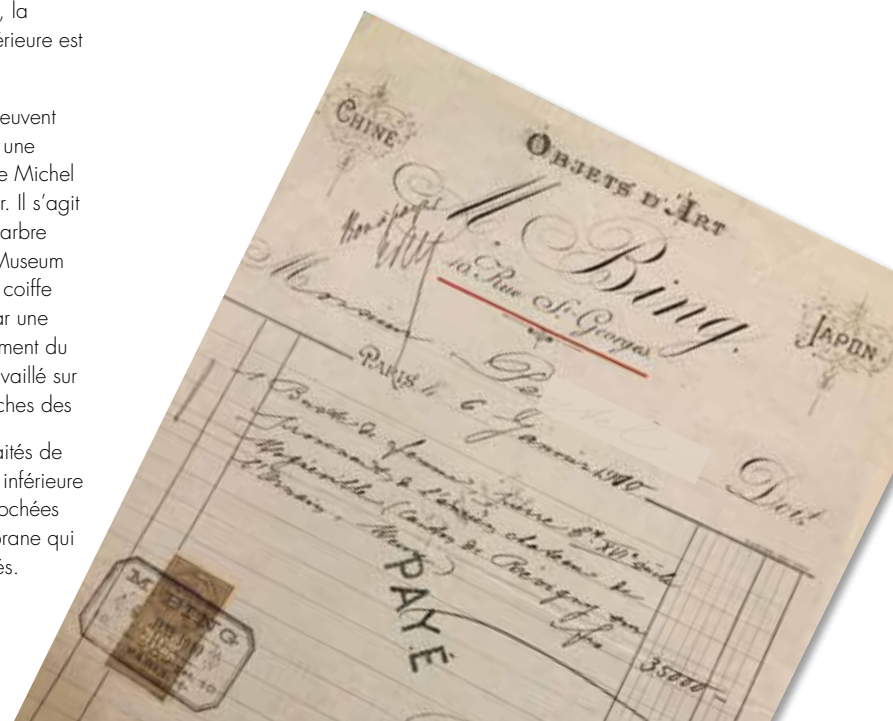 , la
érieure est
euvent
une
e Michel
r. Il s’agit
arbre
Museum
coiffe
ar une
ment du
vaillé sur
ches des
aités de
inférieure
ochées
orane qui
és.
CHINE
OBJETS D'ART
M. Bing.
10, Rue St. Georges
JAPON
Monsieur
Doit
PARIS, le 6 Janvier 1910
1 Buste de femme pierre
provenant de l'ancien chateau de
(Canton de Revigny
PAYÉ
35000
M BING